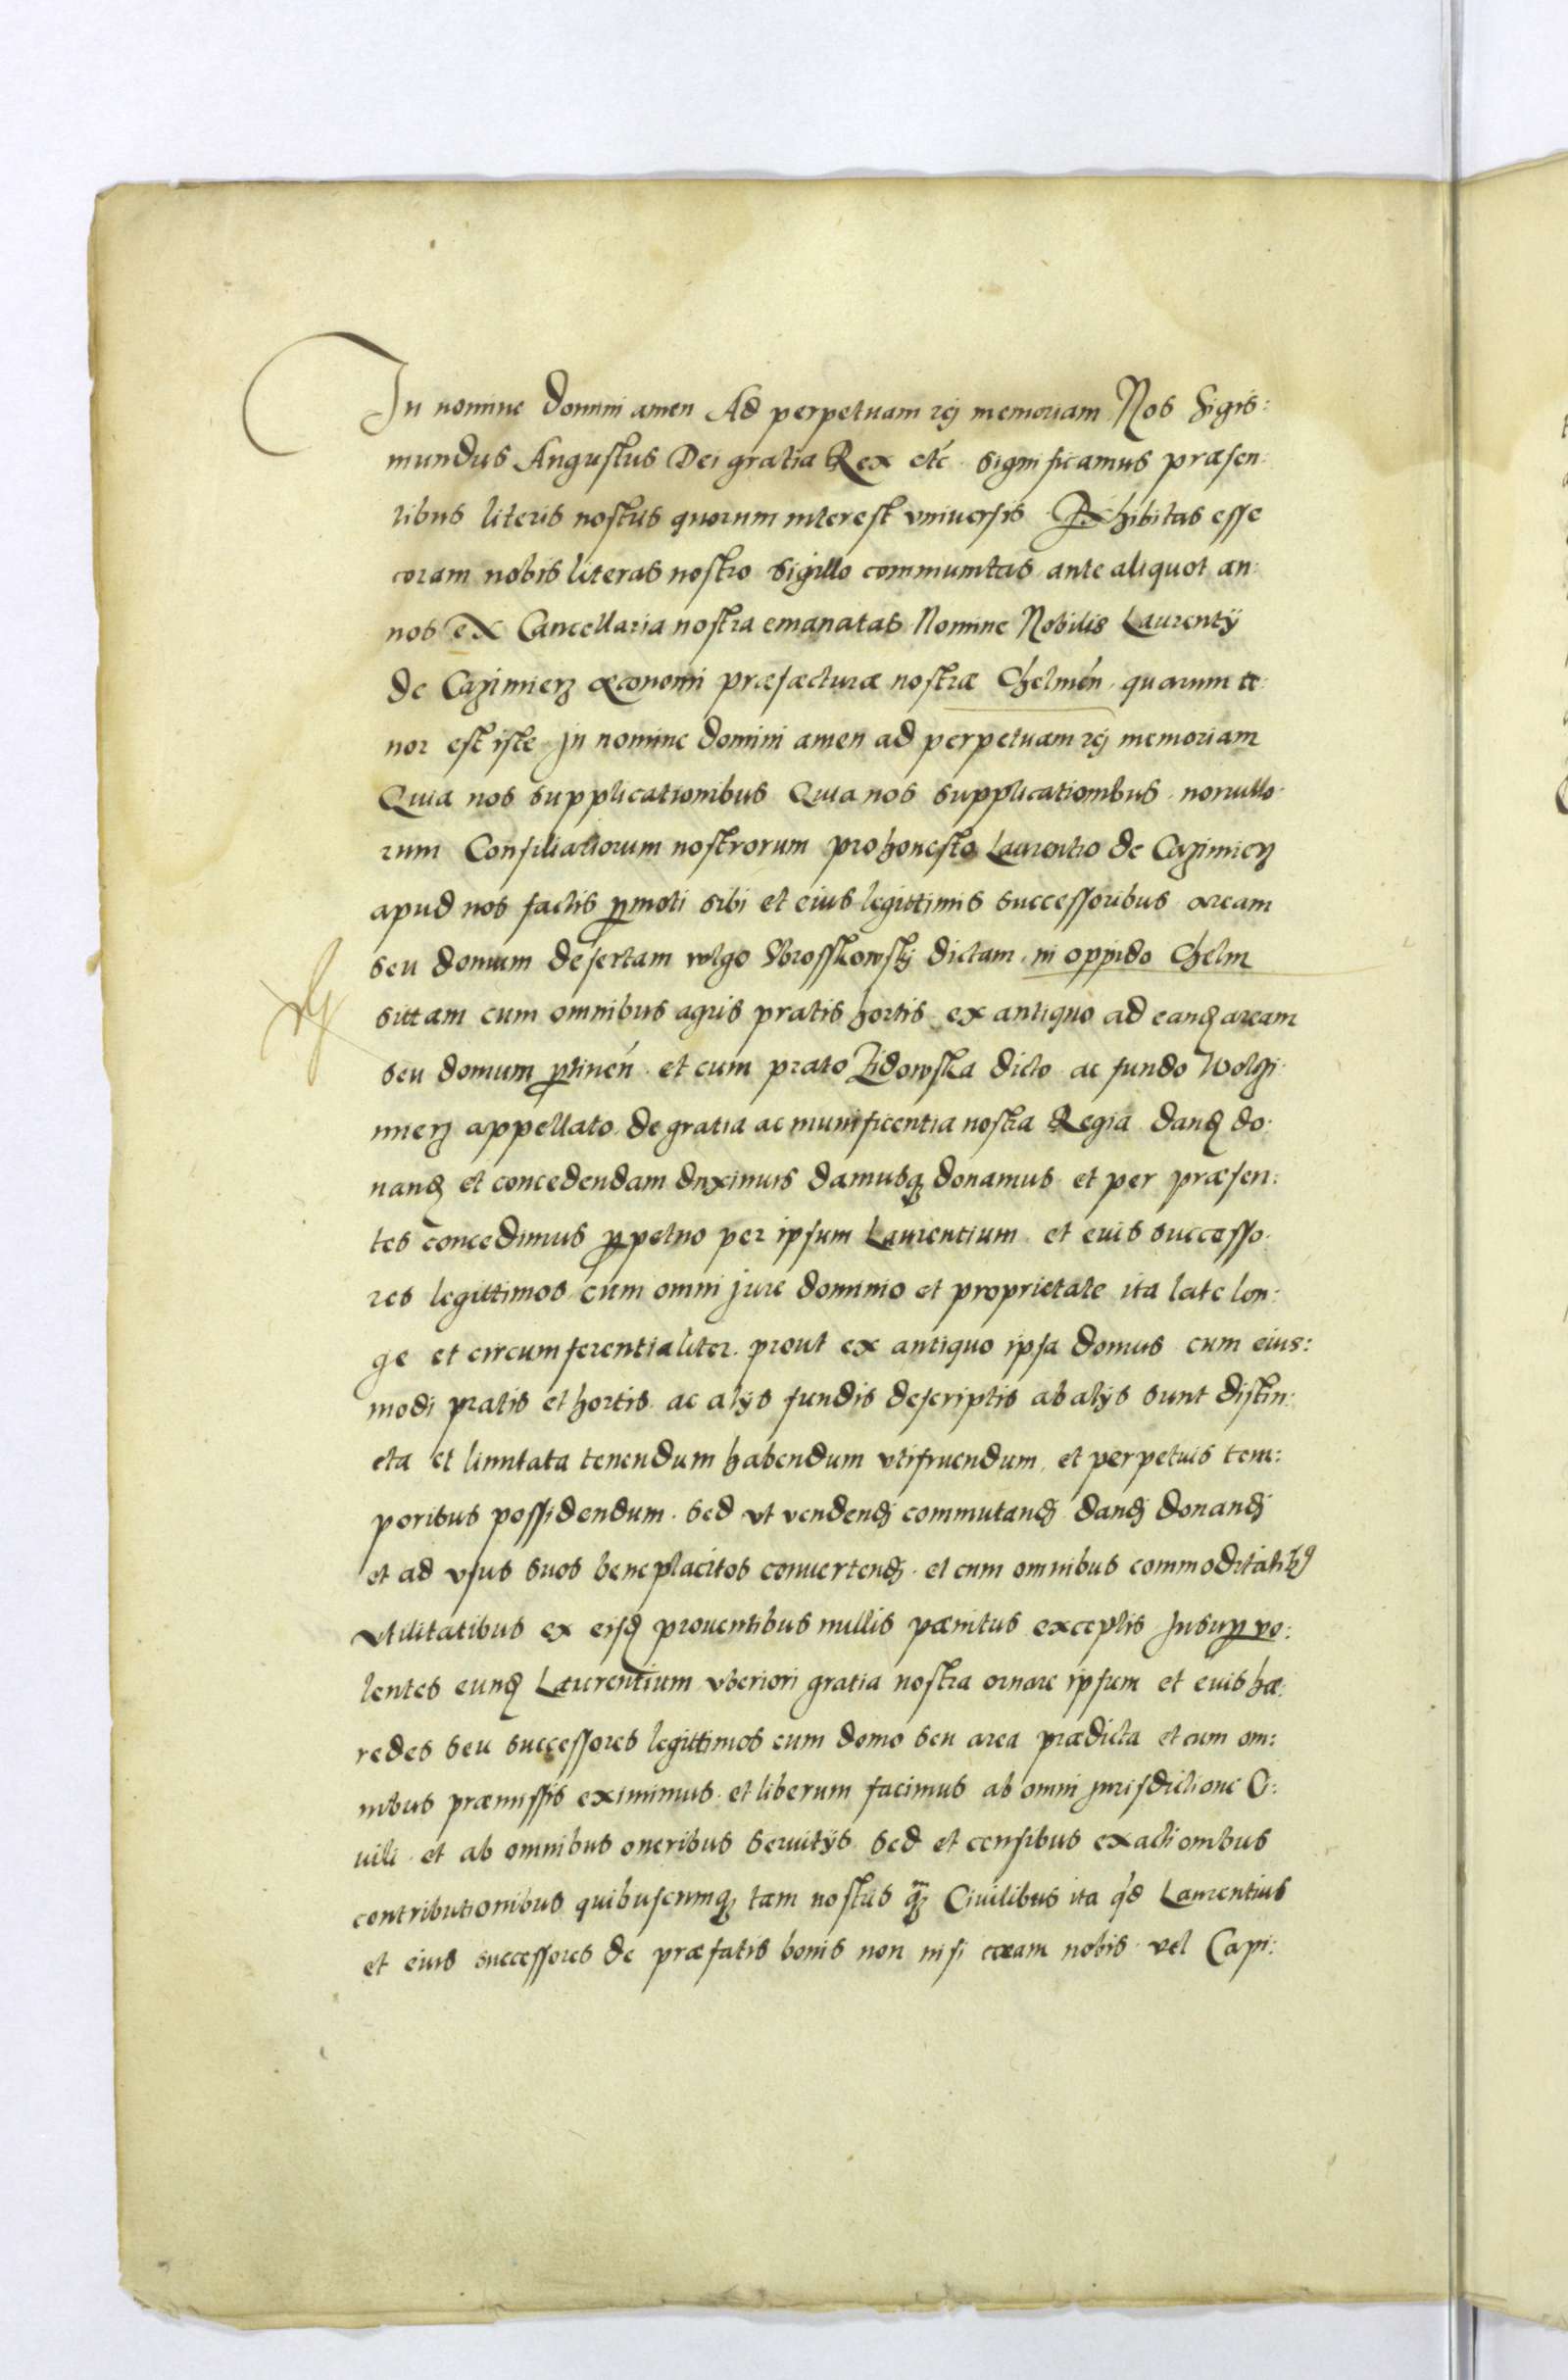 In nomine Domini amen Ad perpetuam rej memoriam Nos Sigis:
mundus Augustus Dei gratia Rex etć significamus præsen:
tibus literis nostris quorum interest vniuersis Exhibitas esse
coram nobis literas nostro sigillo communitas ante aliquot an:
nos ex Cancellaria nostra emanatas Nomine Nobilis Laurentÿ
de Cazimierz œconomi præfecturæ nostræ Chelmeń quarum te:
nor est iste In nomine Domini amen ad perpetuam rej memoriam
Quia nos supplicationibus Quia nos supplicationibus nonullo:
rum Consiliariorum nostrorum pro honesto Laurentio de Cazimierz
apud nos factis ꝑmoti sibi et eius legittimis successoribus aream
seu domum desertam vulgo dictam in oppido Chelm
sittam cum omnibus agris pratis hortis ex antiquo ad eandꝫ aream
seu domum ꝑtineń et cum prato Zidowska dicto ac fundo Wolgi:
mierz appellato de gratia ac munificentia nostra Regia dandꝫ do:
nandꝫ et concedendam duximus damusqꝫ donamus et per præsen:
tes concedimus ꝑpetuo per ipsum Laurentium et eius successo:
res legittimos cum omni jure dominio et proprietate ita late lon:
ge et circumferentialiter prout ex antiquo ipsa domus cum eius:
modi pratis et hortis ac alÿs fundis descriptis ab alÿs sunt distin:
cta et limitata tenendum habendum vtifruendum et perpetuis tem:
poribus possidendum sed vt vendendꝫ commutandꝫ dandꝫ donandꝫ
et ad vsus suos beneplacitos conuertendꝫ et cum omnibus commoditatibꝫ
vtilitatibus ex eisdꝫ prouentibus nullis pænitus exceptis Insuꝑ vo:
lentes eundꝫ Laurentium vberiori gratia nostra ornare ipsum et eius hæ:
redes seu successores legittimos cum domo seu area prædicta et cum om:
nibus præmissis eximimus et liberum facimus ab omni jurisdictione Ci:
uili et ab omnibus oneribus seruitÿs sed et censibus exactionibus
contributionibus quibuscumqꝫ tam nostris qꝫ Ciuilibus ita qd́ Laurentius
et eius successores de præfatis bonis non nisi coram nobis vel Capi: